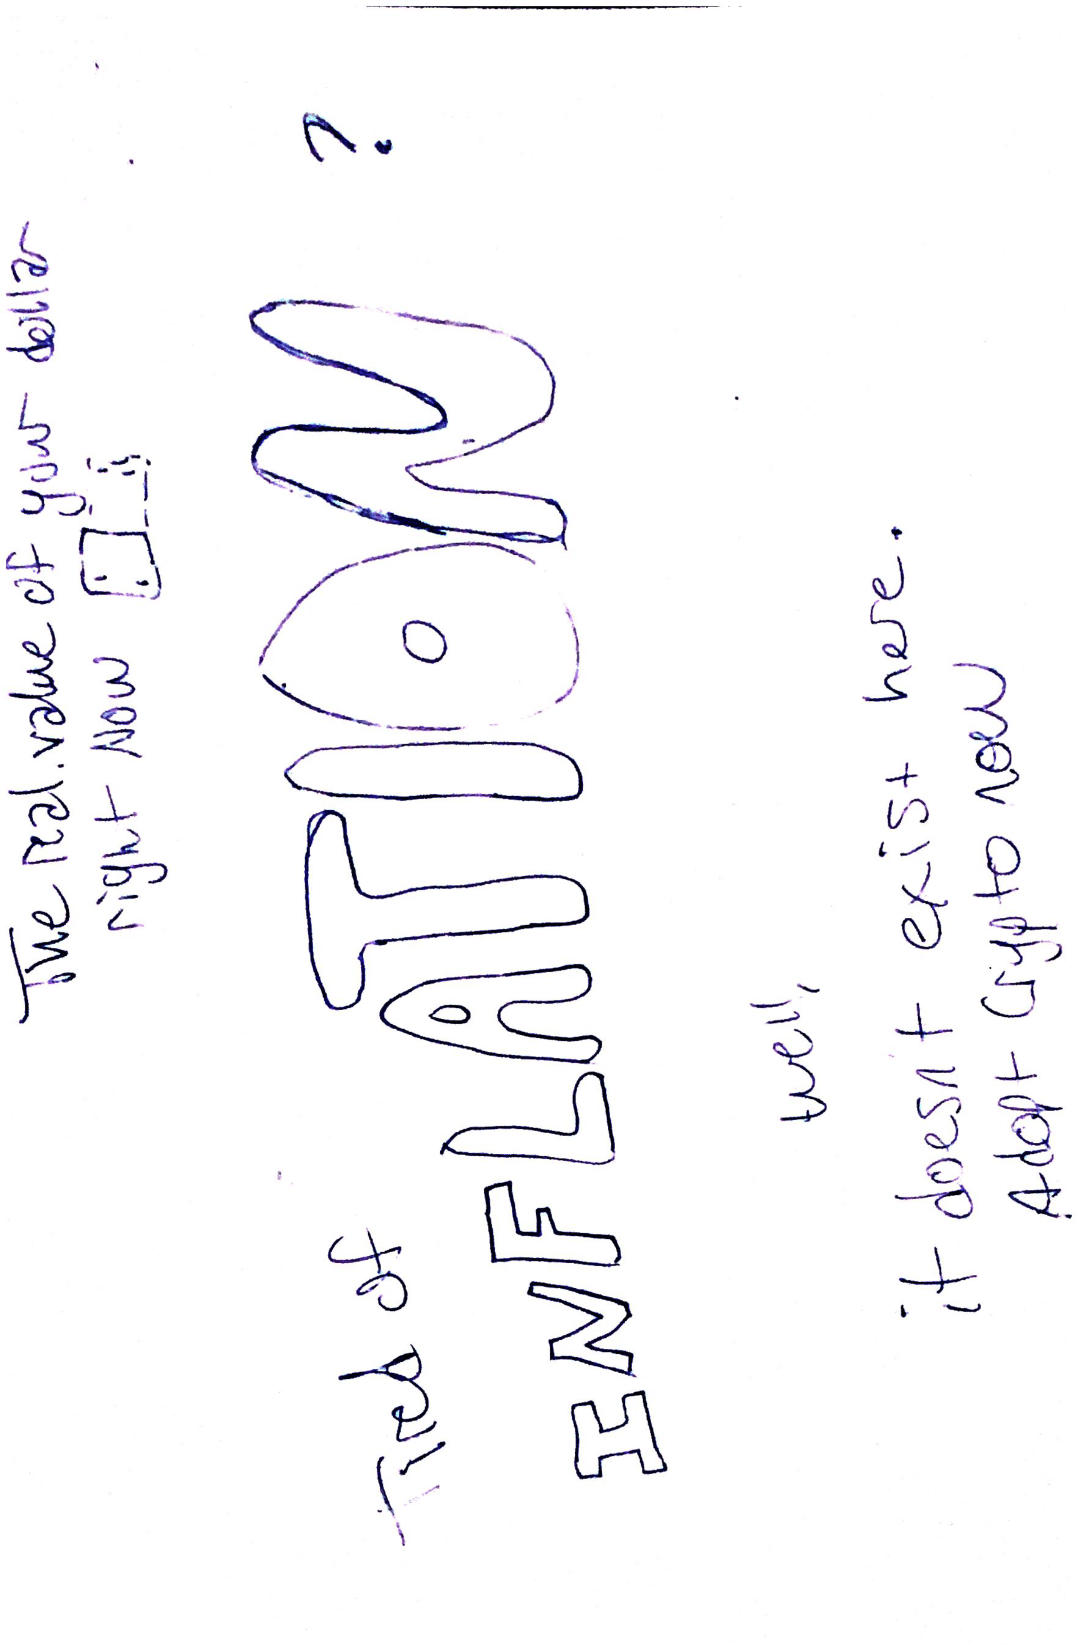 The real value of your dollar
right Now
Tired of
INFLATION ?
well,
it doesn't exist here.
Adopt Crypto now